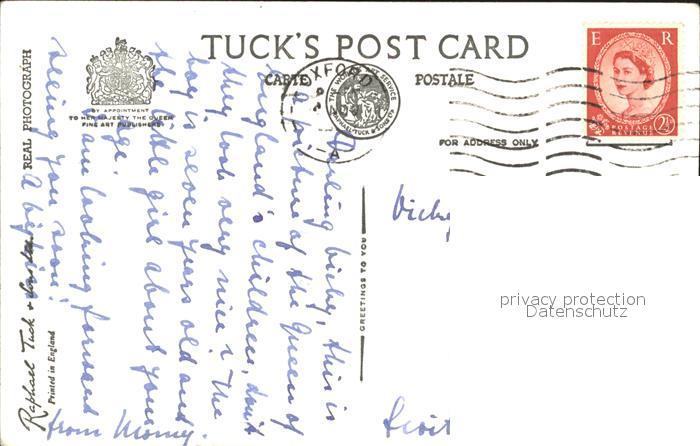 TUCK'S POST CARD
CARTE POSTALE
BY APPOINTMENT
TO HER MAJESTY THE QUEEN
FINE ART PUBLISHERS
OXFORD
E R
POSTAGE
REVENUE
2½
FOR ADDRESS ONLY
REAL PHOTOGRAPH
Raphael Tuck & Sons Ltd.
Printed in England
GREETINGS TO YOU
Darling Vicky, this is
a picture of the Queen of
England's children, don't
they look very nice? The
boy is seven years old and
the little girl about your
age.
I am looking forward
seeing you soon!
from Mommy.
Vicky
privacy protection
Datenschutz